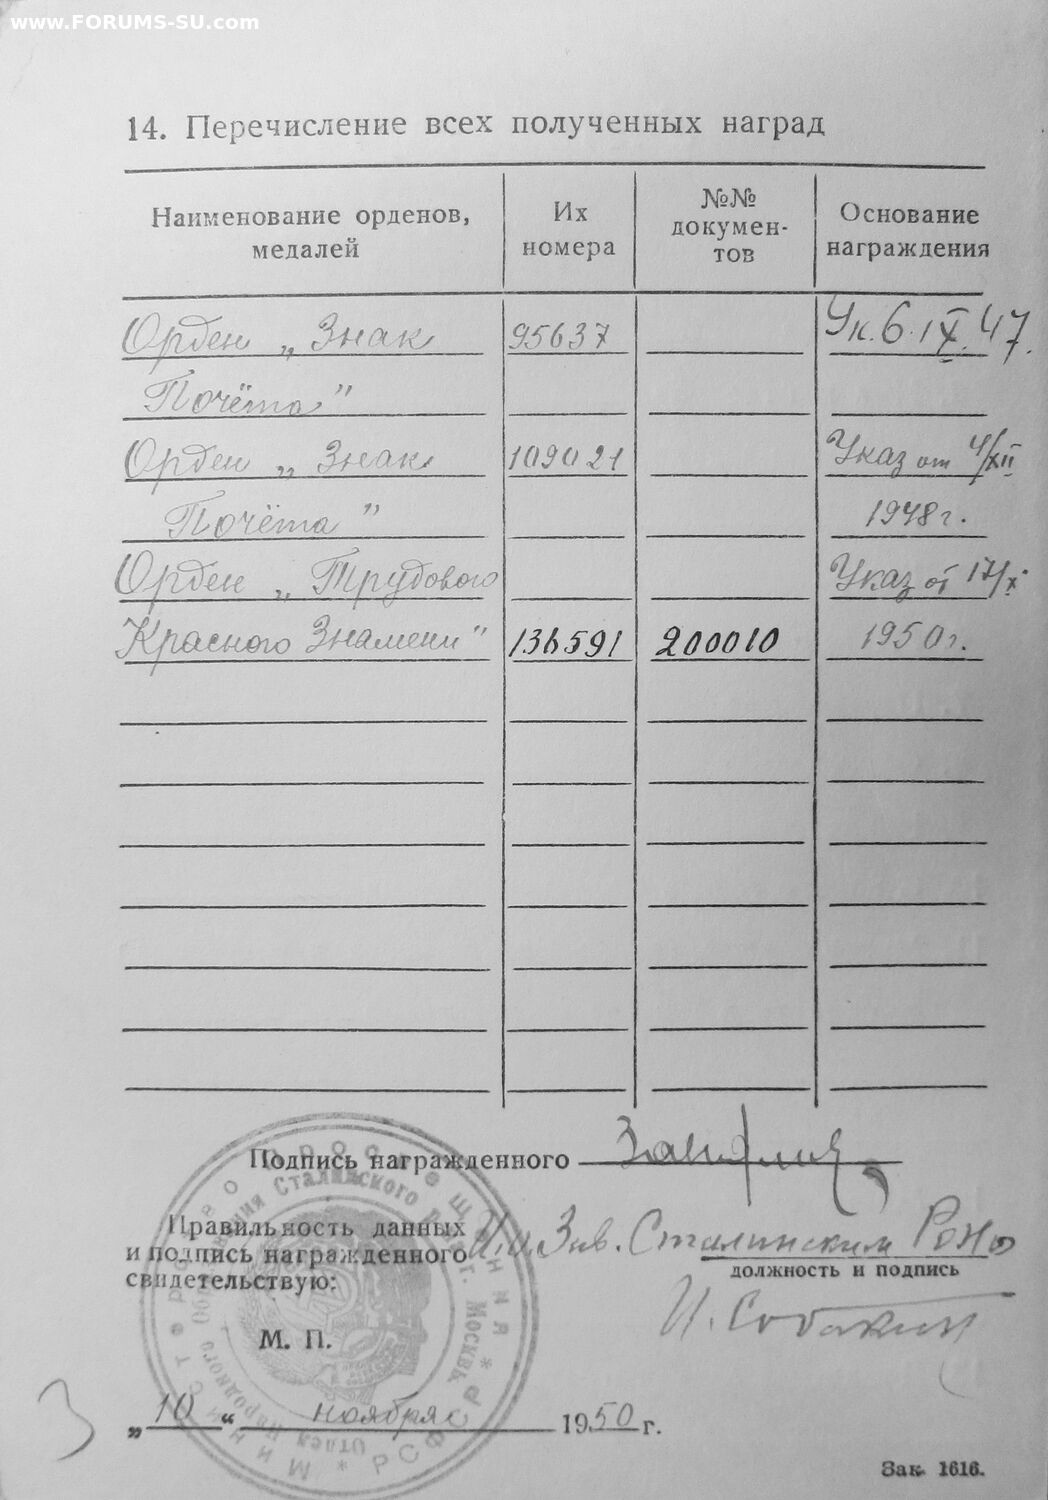 www.FORUMS-SU.com
14. Перечисление всех полученных наград
Наименование орденов, медалей
Их номера
№№ докумен-
тов
Основание награждения
Орден „Знак 95637 Ук. 6.IX.47.
Почёта"
Орден „Знак 109021 Указ от 4/XII
Почёта" 1948 г.
Орден „Трудового Указ от 17/X
Красного Знамени" 136591 200010 1950 г.
Подпись награжденного
Правильность данных
и подпись награжденного
свидетельствую:
И.о. Зав. Сталинским РОНО
должность и подпись
И. Собакин
М. П.
Министерство Просвещения * РСФСР *
Отдел Народного Образования Сталинского г. Москвы
3
„10" ноября 1950 г.
Зак. 1616.